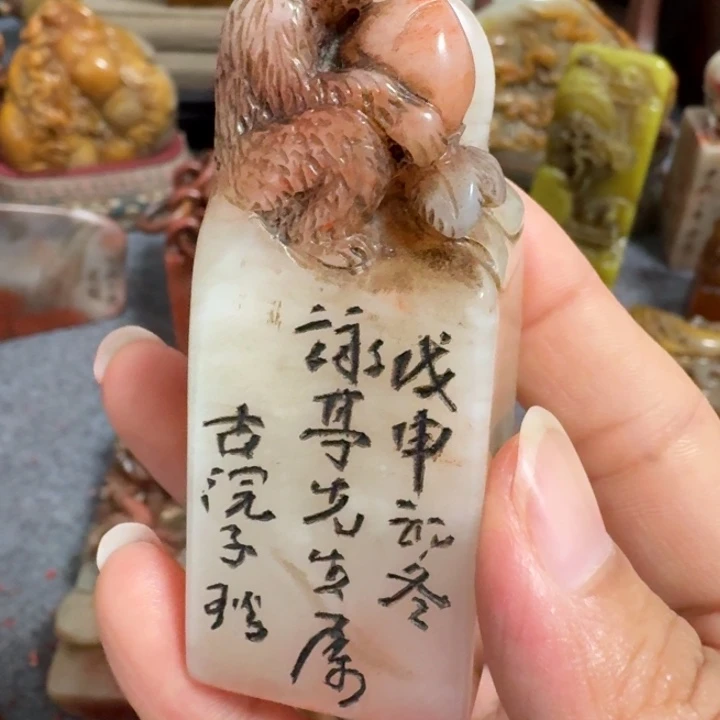 戊申初冬
詠亭先生属
古浣子琰